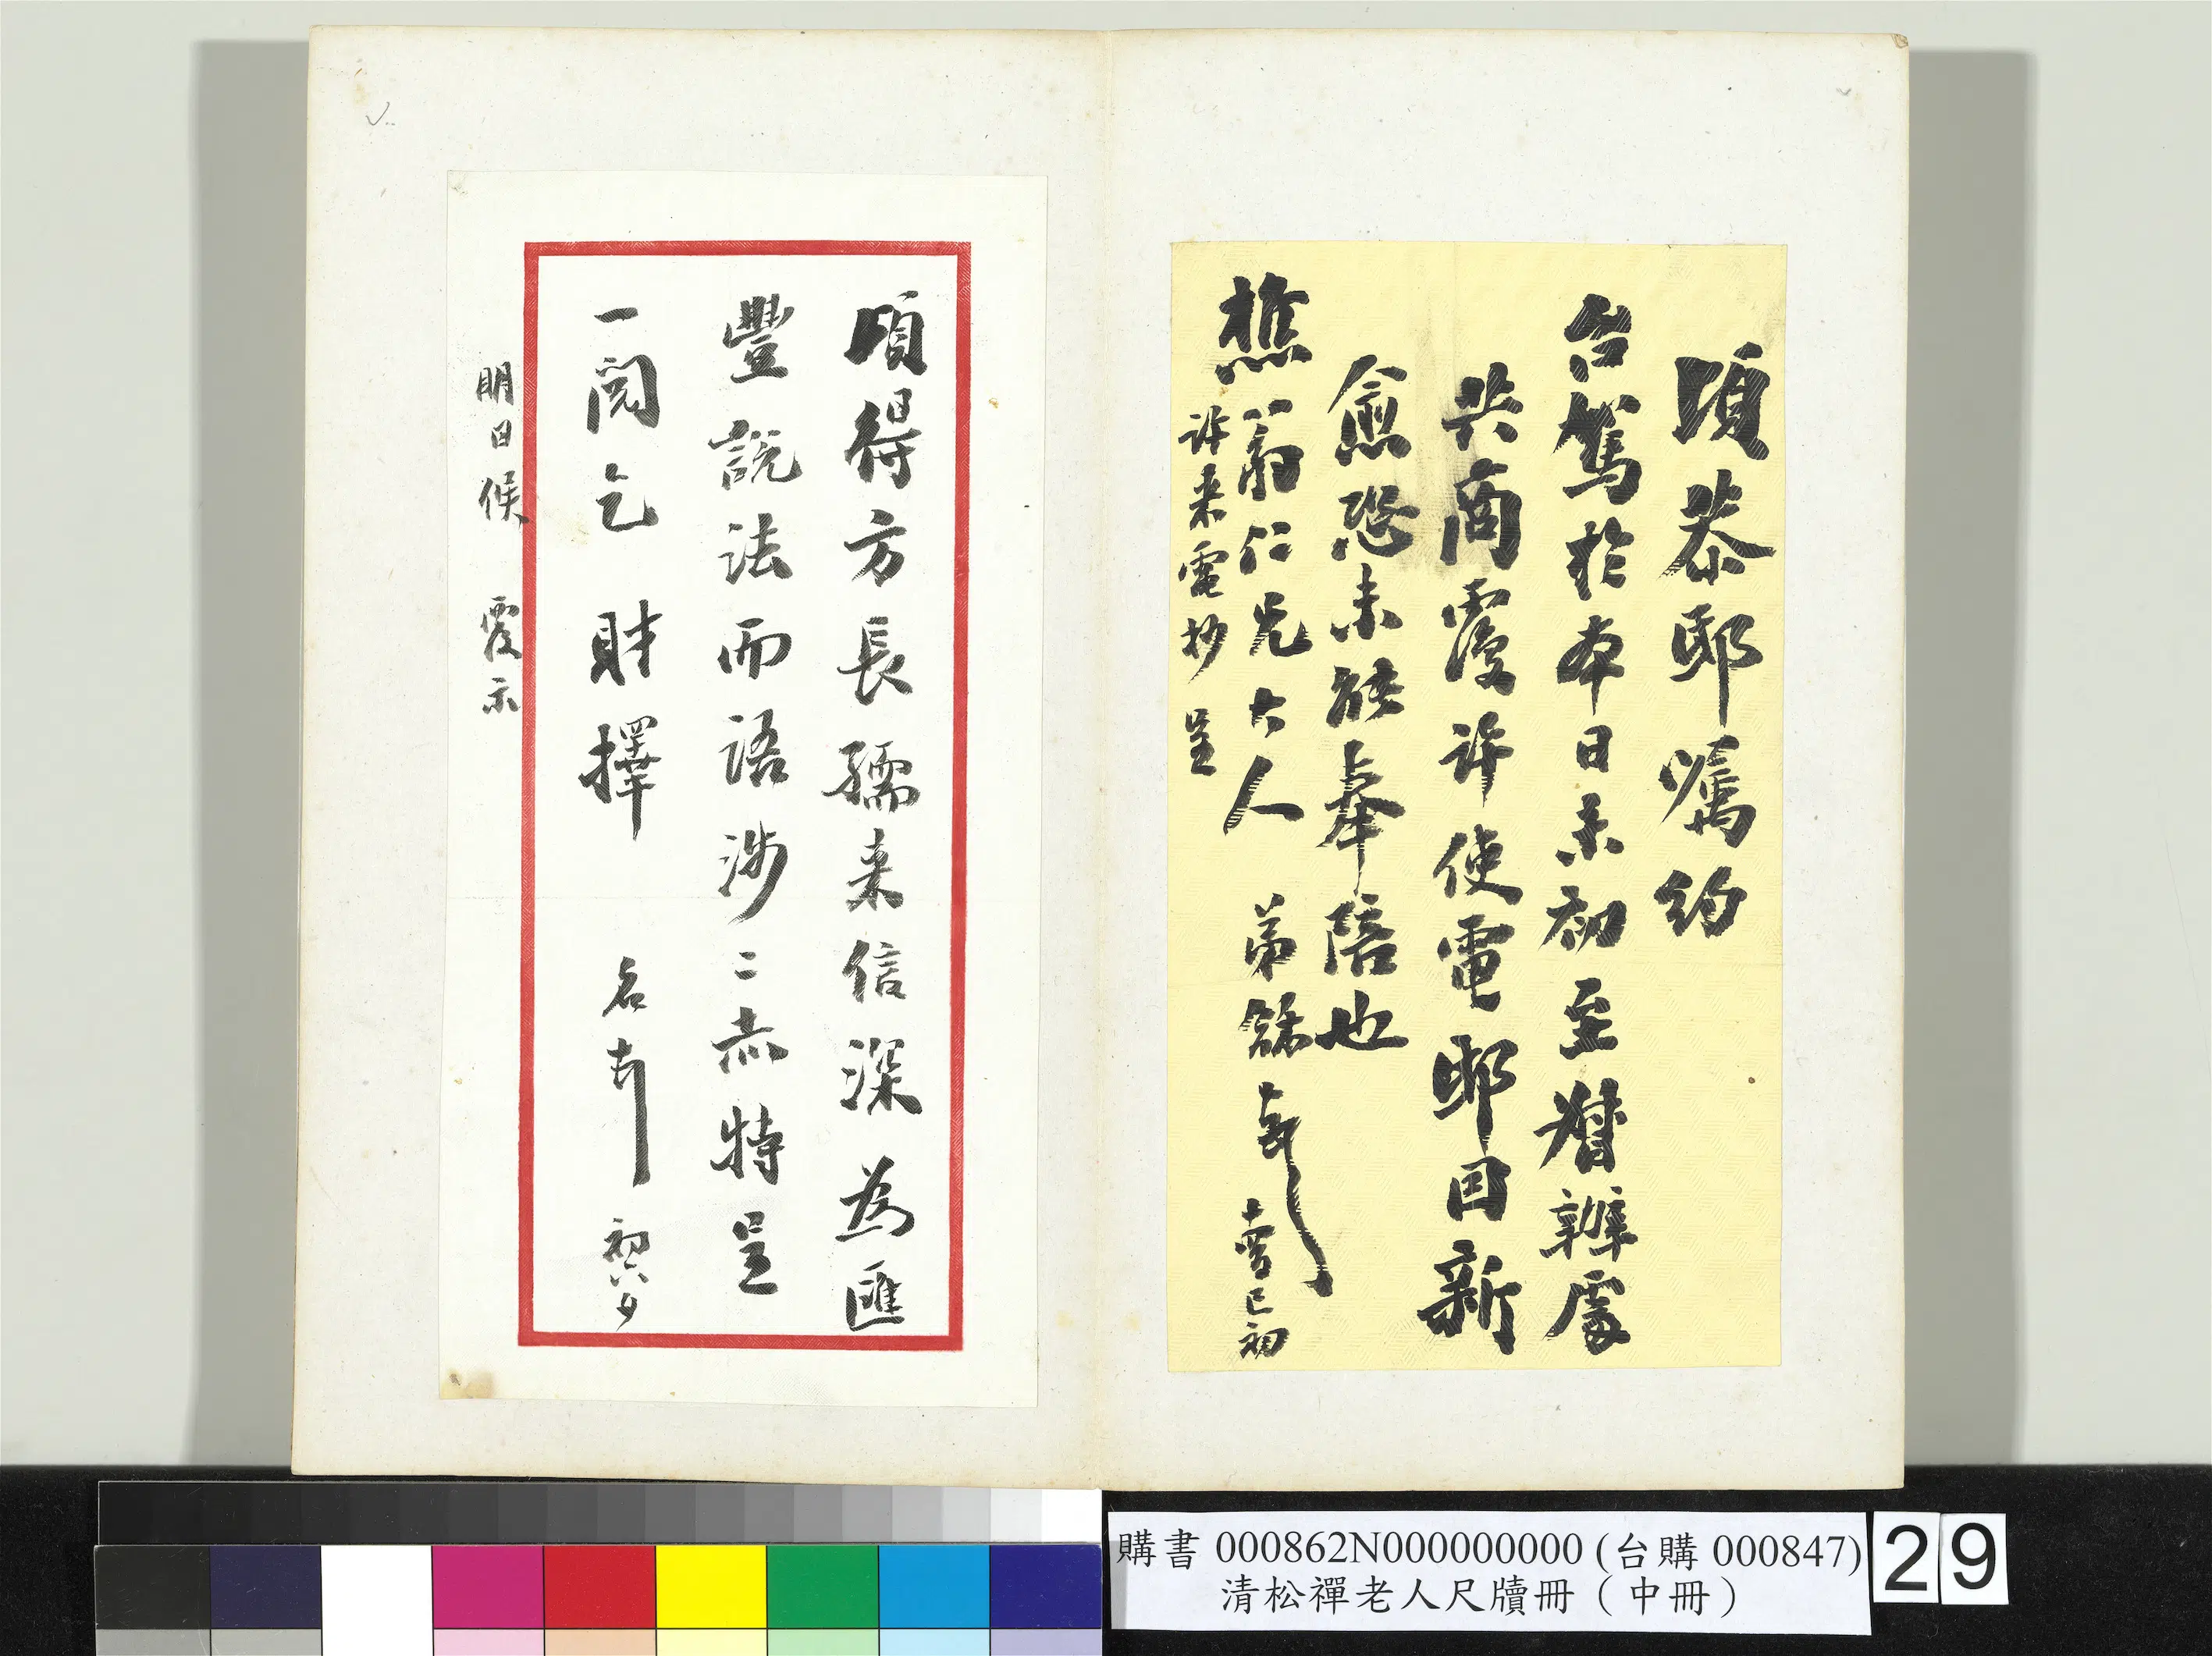 頃恭邸囑約
台駕於本日未初至督辦處
共商覆許使電邸目新
愈恐未能奉陪也
樵翁仁兄大人 弟龢頓 巳初
許來電抄呈
頃得方長孺來信深為匯
豐説法而語涉二赤特呈
一閱乞 財擇 名頓 初六夕
明日候 覆示
購書 000862N000000000 (台購 000847)
清松禪老人尺牘冊（中冊）
29